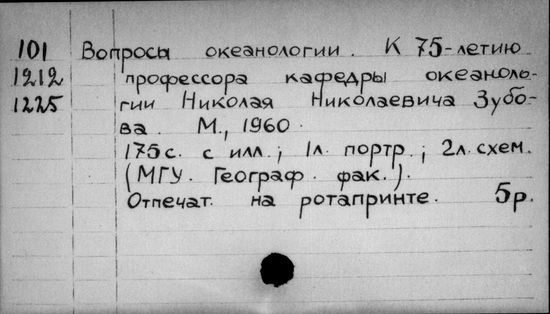 101 Вопросы океанологии. К 75-летию
1212 профессора кафедры океаноло-
1225 гии Николая Николаевича Зубо-
ва. М., 1960.
175 с. с илл.; 1л. портр.; 2л. схем.
(МГУ. Географ. фак.).
Отпечат. на ротапринте. 5р.